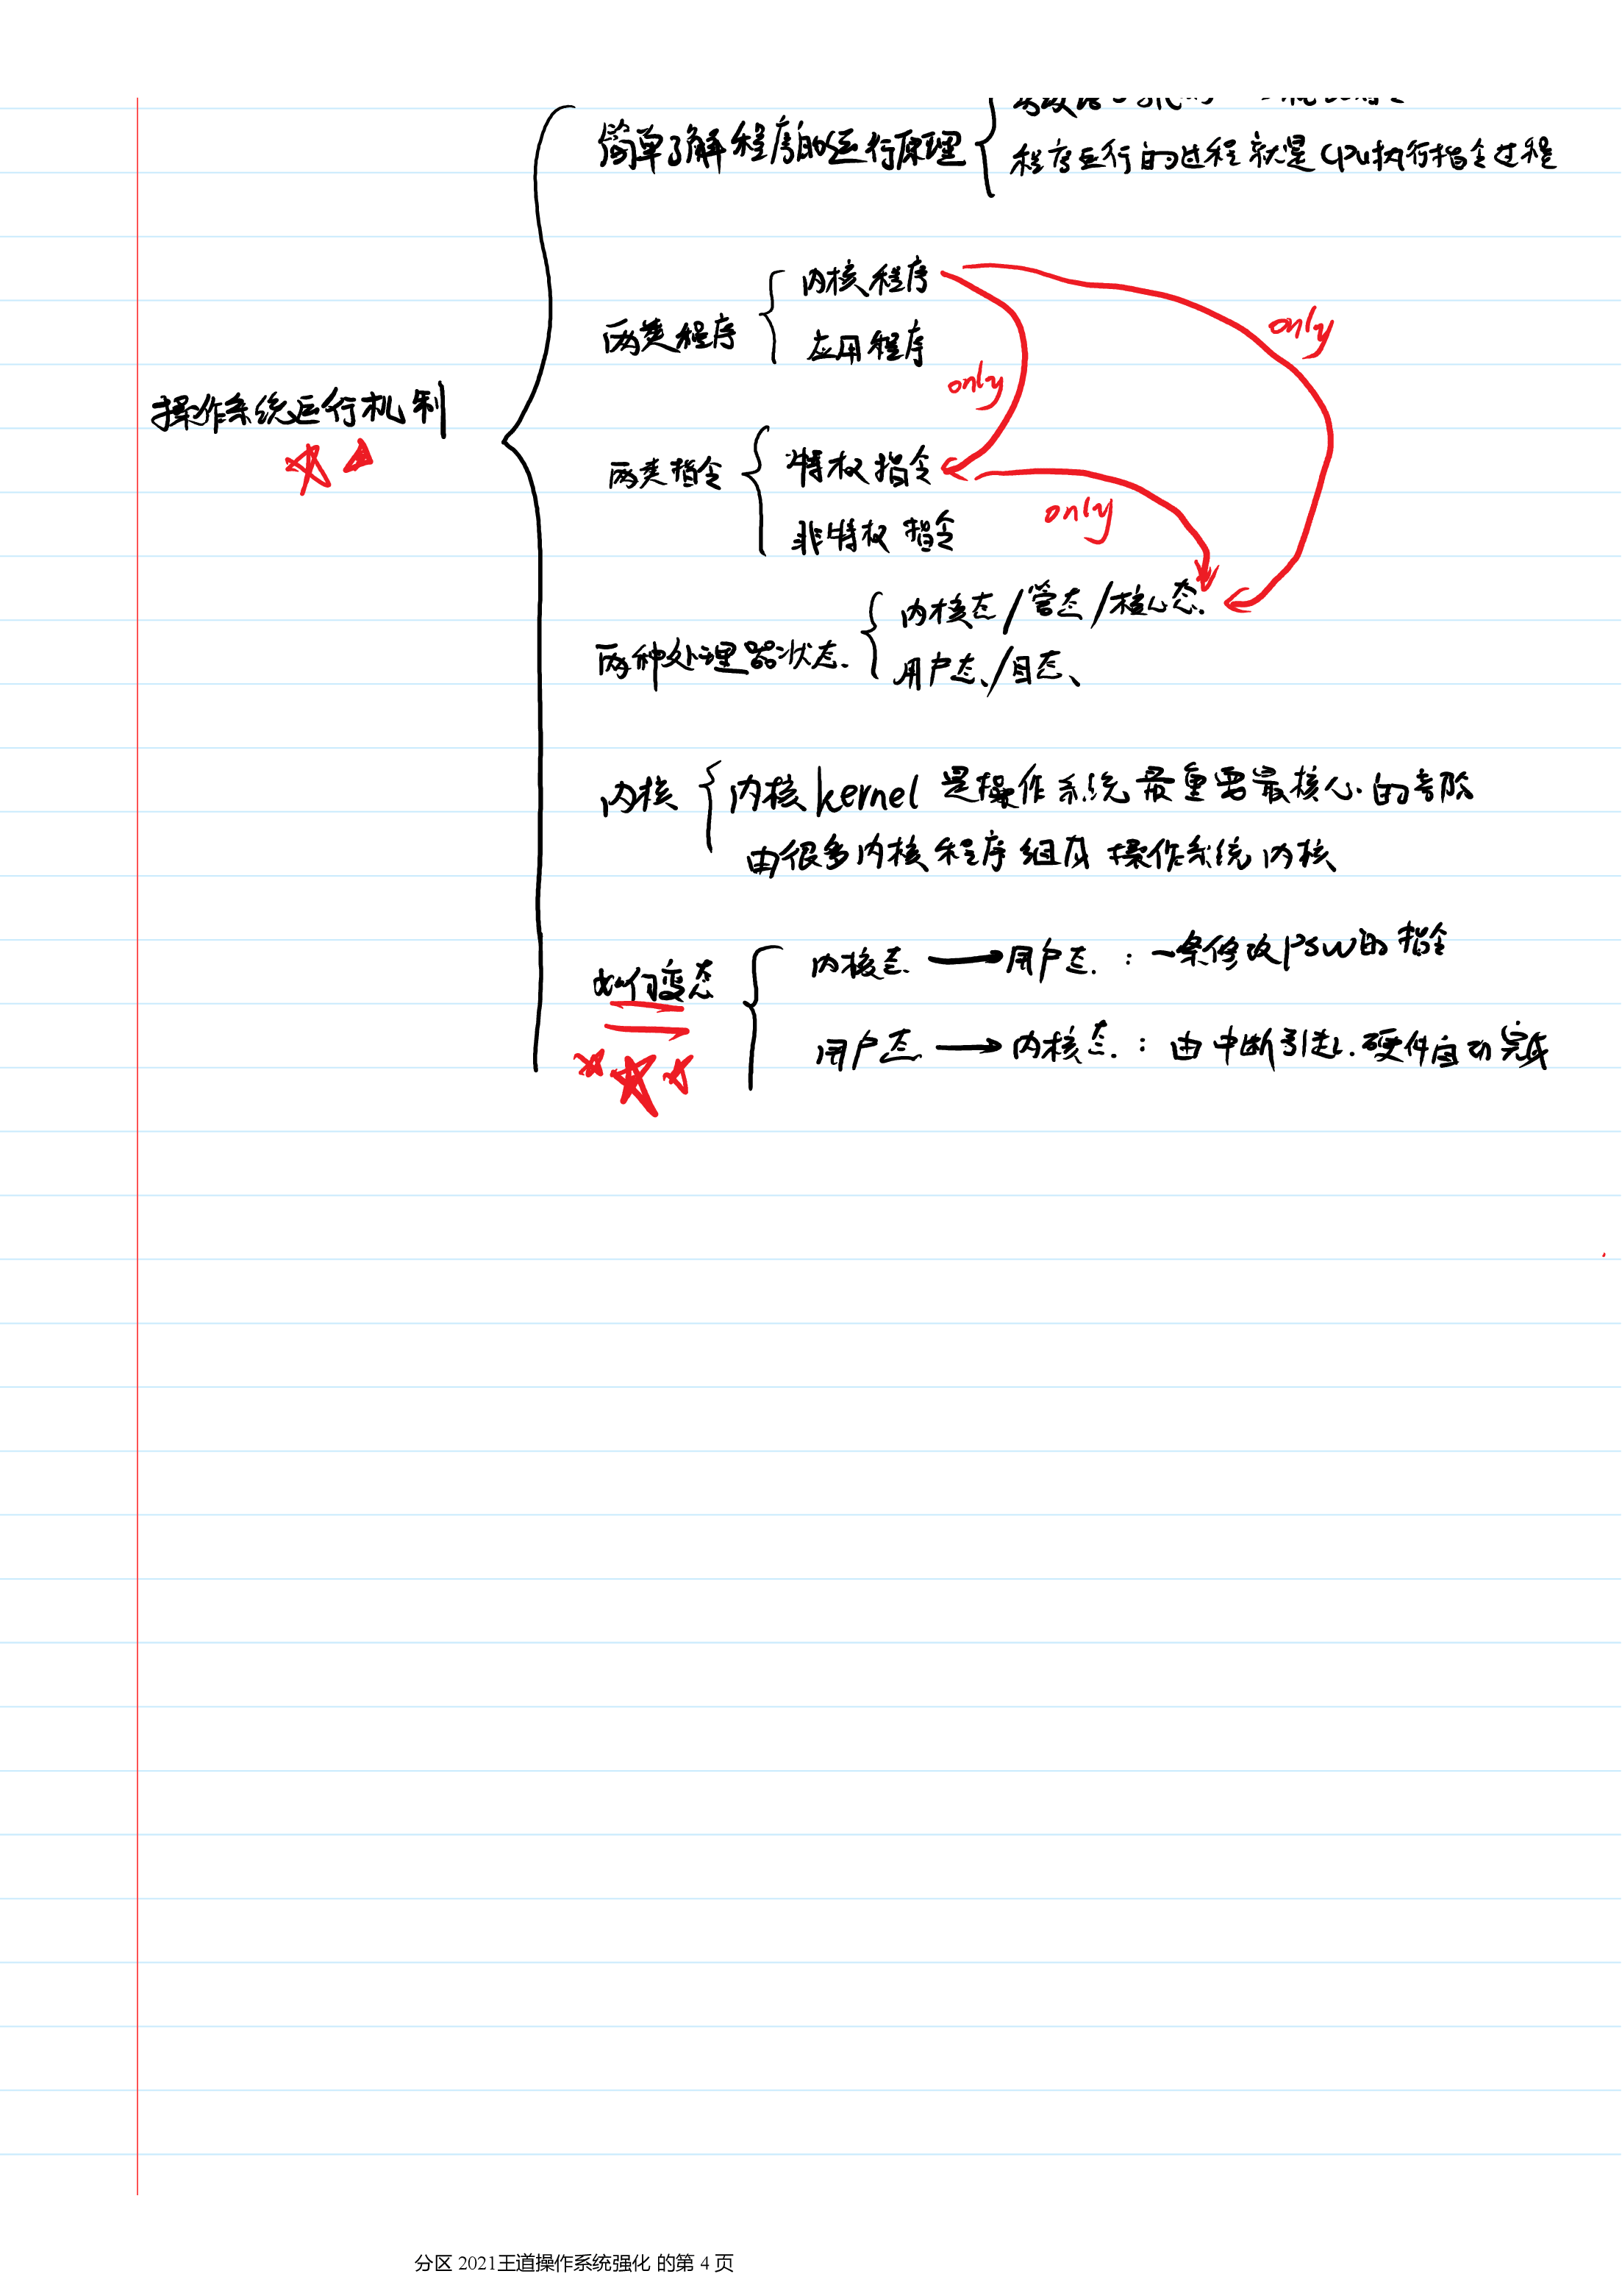 简单了解程序的运行原理
程序运行的过程就是CPU执行指令过程
内核程序
only
两类程序
应用程序
only
操作系统运行机制
两类指令
特权指令
only
非特权指令
内核态/管态/核心态.
两种处理器状态.
用户态/目态、
内核
内核kernel 是操作系统最重要最核心的部分
由很多内核程序组成操作系统内核
如何变态
内核态 → 用户态. : 一条修改PSW的指令
用户态 → 内核态. : 由中断引起. 硬件自动完成
分区 2021王道操作系统强化 的第 4 页